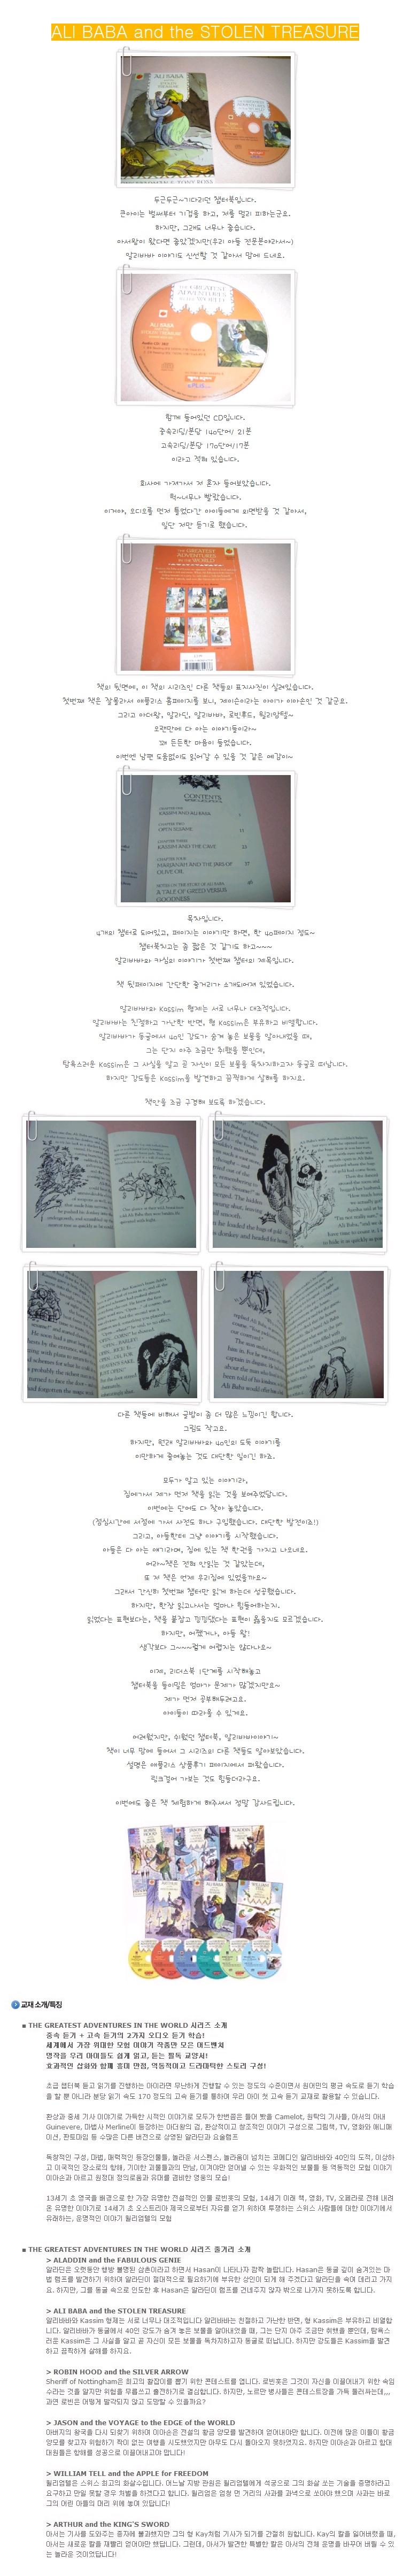 ALI BABA and the STOLEN TREASURE
두근두근~기다리던 챕터북입니다.
큰아이는 벌써부터 기겁을 하고, 저를 멀리 피하는군요.
하지만, 그래도 너무나 좋습니다.
아서왕이 왔다면 좋았겠지만(우리 아들 전문분야라서~)
알리바바 이야기도 신선할 것 같아서 맘에 드네요.
함께 들어있던 CD입니다.
중속리딩/분당 140단어/ 21분
고속리딩/분당 170단어/17분
이라고 적혀 있습니다.
회사에 가져가서 저 혼자 들어보았습니다.
헉~너무나 빨랐습니다.
이거야, 오디오를 먼저 틀었다간 아이들에게 외면받을 것 같아서,
일단 저만 듣기로 했습니다.
책의 뒷면에, 이 책의 시리즈인 다른 책들의 표지사진이 실려있습니다.
첫번째 책은 잘몰라서 애플리스 홈페이지를 보니, 제이슨이라는 아이가 이아손인 것 같군요.
그리고 아더왕, 알라딘, 알리바바, 로빈후드, 윌리암텔~
오랜만에 다 아는 이야기들이라~
꽤 든든한 마음이 들었습니다.
이번엔 남편 도움없이도 읽어갈 수 있을 것 같은 예감이~
CONTENTS
KASSIM AND ALI BABA
OPEN SESAME
KASSIM AND THE CAVE
MARJANAH AND THE JARS OF
OLIVE OIL
목차입니다.
4개의 챕터로 되어있고, 페이지는 이야기만 하면, 한 40페이지 정도~
챕터북치고는 좀 짧은 것 같기도 하고~~~
알리바바와 카심의 이야기가 첫번째 챕터의 제목입니다.
책 뒷페이지에 간단한 줄거리가 소개되어져 있었습니다.
알리바바와 Kassim 형제는 서로 너무나 대조적입니다.
알리바바는 친절하고 가난한 반면, 형 Kassim은 부유하고 비열합니다.
알리바바가 동굴에서 40인 강도가 숨겨 놓은 보물을 알아내었을 때,
그는 단지 아주 조금만 취했을 뿐인데,
탐욕스러운 Kassim은 그 사실을 알고 곧 자신이 모든 보물을 독차지하고자 동굴로 떠납니다.
하지만 강도들은 Kassim을 발견하고 끔찍하게 살해를 하지요.
책안을 조금 구경해 보도록 하겠습니다.
다른 책들에 비해서 글밥이 좀 더 많은 느낌이긴 합니다.
그림도 작고요.
하지만, 원래 알리바바와 40인의 도둑 이야기를
이만하게 줄여놓는 것도 대단한 일이긴 하죠.
모두가 알고 있는 이야기라,
집에가서 제가 먼저 책을 읽는 것을 보여주었답니다.
이번에는 단어도 다 찾아 놓았습니다.
(점심시간에 서점에 가서 사전도 하나 구입했습니다. 대단한 발전이죠!)
그리고, 아들한테 그냥 이야기를 시작했습니다.
아들은 다 아는 얘기라며, 집에 있는 책 한권을 가지고 나오네요.
어라~책은 전혀 안읽는 것 같았는데,
또 저 책은 언제 우리집에 있었을까요~
그래서 간신히 첫번째 챕터만 읽게 하는데 성공했습니다.
하지만, 한장 읽고나서는 얼마나 힘들어하는지.
읽었다는 표현보다는, 책을 붙잡고 낑낑댔다는 표현이 옳을지도 모르겠습니다.
하지만, 어쨌거나, 아들 왈!
생각보다 그~~~렇게 어렵지는 않다나요~
이제, 리더스북 1단계를 시작해놓고
챕터북을 들이밀은 엄마가 문제가 많겠지만요~
제가 먼저 공부해두려고요.
아이들이 따라올 수 있게요.
어려웠지만, 쉬웠던 챕터북, 알리바바이야기~
책이 너무 맘에 들어서 그 시리즈의 다른 책들도 알아보았습니다.
설명은 애플리스 상품후기 페이지에서 퍼왔습니다.
링크걸어 가보는 것도 힘들더라구요.
이번에도 좋은 책 체험하게 해주셔서 정말 감사드립니다.
교재 소개/특징
■ THE GREATEST ADVENTURES IN THE WORLD 시리즈 소개
중속 듣기 + 고속 듣기의 2가지 오디오 듣기 학습!
세계에서 가장 위대한 모험 이야기 작품만 모은 어드벤쳐
명작을 우리 아이들도 쉽게 읽고, 듣는 필독 교양서!
효과적인 삽화와 함께 흥미 만점, 역동적이고 드라마틱한 스토리 구성!
초급 챕터북 듣고 읽기를 진행하는 아이라면 무난하게 진행할 수 있는 정도의 수준이면서 원어민의 평균 속도로 듣기 학습
을 할 뿐 아니라 분당 읽기 속도 170 정도의 고속 듣기를 통하여 우리 아이 첫 고속 듣기 교재로 활용할 수 있습니다.
환상과 중세 기사 이야기로 가득한 시적인 이야기로 모두가 한번쯤은 들어 봤을 Camelot, 원탁의 기사들, 아서의 아내
Guinevere, 마법사 Merline이 등장하는 아더왕의 검, 환상적이고 창조적인 이야기 구성으로 그림책, TV, 영화와 애니메
이션, 판토마임 등 수많은 다른 버전으로 상영된 알라딘과 요술램프
독창적인 구성, 마법, 매력적인 등장인물들, 놀라운 서스펜스, 놀라움이 넘치는 코메디인 알리바바와 40인의 도적, 이상하
고 이국적인 장소로의 항해, 기이한 괴물들과의 만남, 이겨야만 얻어낼 수 있는 우화적인 보물들 등 역동적인 모험 이야기
이아손과 아르고 원정대 정의로움과 유머를 겸비한 영웅의 모습!
13세기 초 영국을 배경으로 한 가장 유명한 전설적인 인물 로빈훗의 모험, 14세기 이래 책, 영화, TV, 오페라로 전해 내려
온 유명한 이야기로 14세기 초 오스트리아 제국으로부터 자유를 얻기 위하여 투쟁하는 스위스 사람들에 대한 이야기에서
유래하는, 운명적인 이야기 윌리엄텔의 모험
■ THE GREATEST ADVENTURES IN THE WORLD 시리즈 줄거리 소개
> ALADDIN and the FABULOUS GENIE
알라딘은 오랫동안 행방 불명된 삼촌이라고 하면서 Hasan이 나타나자 깜짝 놀랍니다. Hasan은 동굴 깊이 숨겨있는 마
법 램프를 발견하기 위하여 알라딘이 절대적으로 필요하기에 부유한 상인이 되게 해 주겠다고 알라딘을 속여 데리고 가지
요. 하지만, 그를 동굴 속으로 인도한 후 Hasan은 알라딘이 램프를 건네주지 않자 밖으로 나가지 못하도록 합니다.
> ALI BABA and the STOLEN TREASURE
알리바바와 Kassim 형제는 서로 너무나 대조적입니다 알리바바는 친절하고 가난한 반면, 형 Kassim은 부유하고 비열합
니다. 알리바바가 동굴에서 40인 강도가 숨겨 놓은 보물을 알아내었을 때, 그는 단지 아주 조금만 취했을 뿐인데, 탐욕스
러운 Kassim은 그 사실을 알고 곧 자신이 모든 보물을 독차지하고자 동굴로 떠납니다. 하지만 강도들은 Kassim을 발견
하고 끔찍하게 살해를 하지요.
> ROBIN HOOD and the SILVER ARROW
Sheriff of Nottingham은 최고의 활잡이를 뽑기 위한 콘테스트를 엽니다. 로빈훗은 그것이 자신을 이끌어내기 위한 속임
수라는 것을 알지만 위험을 무릅쓰고 출전하기로 결심합니다. 하지만, 노르만 병사들은 콘테스트장을 가득 둘러싸는데,,,
과연 로빈훗 어떻게 발각되지 않고 도망할 수 있을까요?
> JASON and the VOYAGE to the EDGE of the WORLD
아버지의 왕국을 다시 되찾기 위하여 이아손은 전설의 황금 양모를 발견하여 얻어내야만 합니다. 이전에 많은 이들이 황금
양모를 찾고자 위험하기 작이 없는 여행을 시도했었지만 아무도 다시 돌아오지 못하였지요. 하지만 이아손과 아르고 함대
대원들은 항해를 성공으로 이끌어내고야 맙니다!
> WILLIAM TELL and the APPLE for FREEDOM
윌리엄텔은 스위스 최고의 화살수입니다. 어느날 지방 판원은 윌리엄텔에게 석궁으로 그의 화살 쏘는 기술을 증명하라고
요구하고 만일 못할 경우 처벌을 하겠다고 합니다. 윌리엄은 엄청 먼 거리의 사과를 과녁으로 쏘아야 했으며 사과는 바로
그의 어린 아들의 머리 위에 놓여 있답니다!
> ARTHUR and the KING'S SWORD
아서는 기사를 도와주는 종자에 불과했지만 그의 형 Kay처럼 기사가 되기를 간절히 원합니다. Kay의 칼을 잃어버렸을 때,
아서는 새로운 칼을 재빨리 얻어야만 했답니다. 그런데, 아서가 발견한 특별한 칼은 아서의 전체 운명을 바꾸어 버릴 수 있
는 놀라운 것이었답니다!